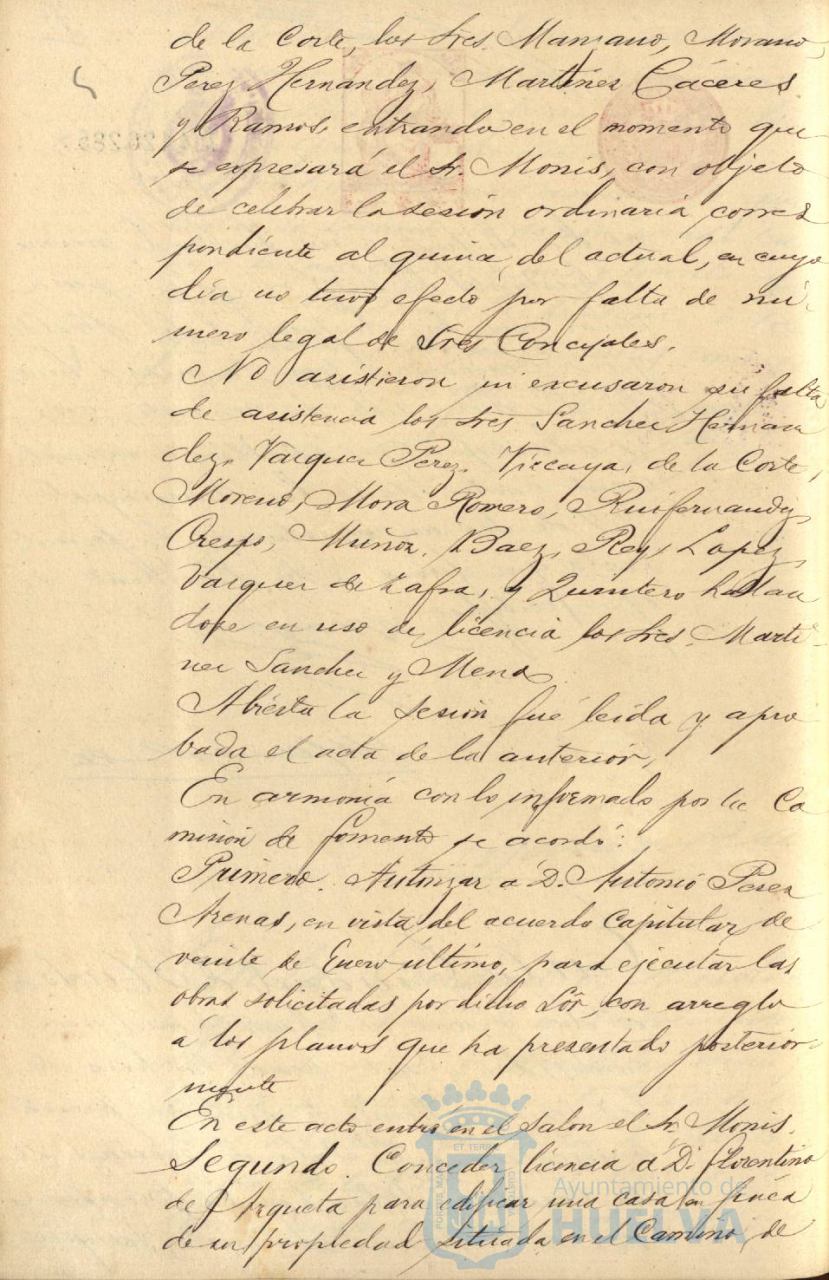 de la Corte, los Sres. Manzano, Morano,
Perez Hernandez, Martinez Cáceres
y Ramos, entrando en el momento que
se expresará el Sr. Monis, con objeto
de celebrar la sesión ordinaria, corres
pondiente al quince del actual, en cuyo
día no tuvo efecto por falta de nú-
mero legal de Sres Concejales.
No asistieron ni excusaron su falta
de asistencia los Sres Sanchez Hernan
dez, Vazquez Perez, Vizcaya, de la Corte,
Moreno, Mora Romero, Ruifernandez,
Crespo, Muñoz, Baez, Rey, Lopez,
Vazquez de Zafra, y Quintero hallan
dose en uso de licencia los Sres. Marti-
nez Sanchez y Mena
Abierta la sesión fué leida y apro
bada el acta de la anteriór,
En armonía con lo informado por la Co
misión de fomento se acordó:
Primero. Autorizar á D. Antonio Perez
Arenas, en vista del acuerdo Capitular, de
veinte de Enero último, para ejecutar las
obras solicitadas por dicho Sór, con arreglo
á los planos que ha presentado posterior-
mente
En este acto entra en el salon el Sr. Monis.
Segundo. Conceder licencia á D. Florentino
de Azqueta para edificar una casa en finca
de su propiedad situada en el Camino de
Ayuntamiento de
HUELVA